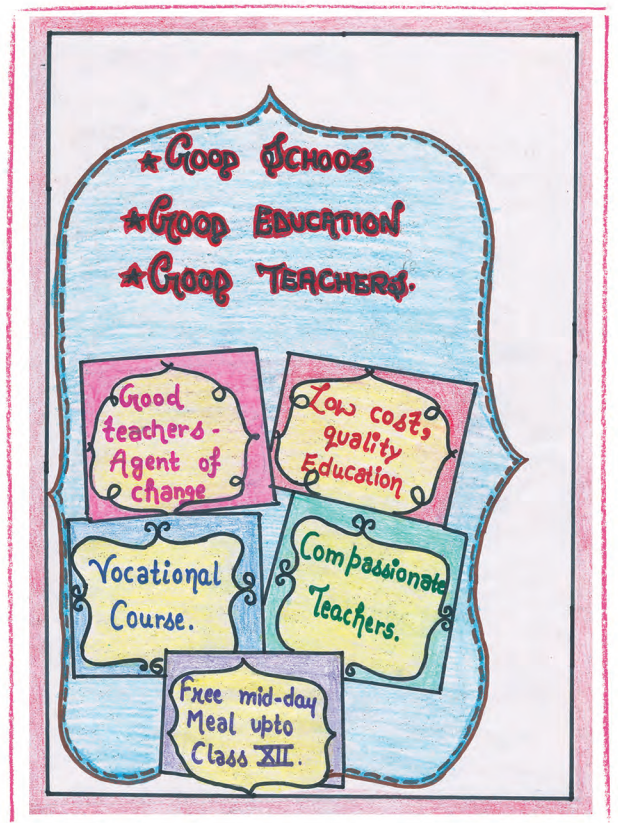 ★Good School
★Good Education
★Good Teachers.
Good
teachers-
Agent of
change
Low cost,
quality
Education
Vocational
Course.
Compassionate
Teachers.
Free mid-day
Meal upto
Class XII.